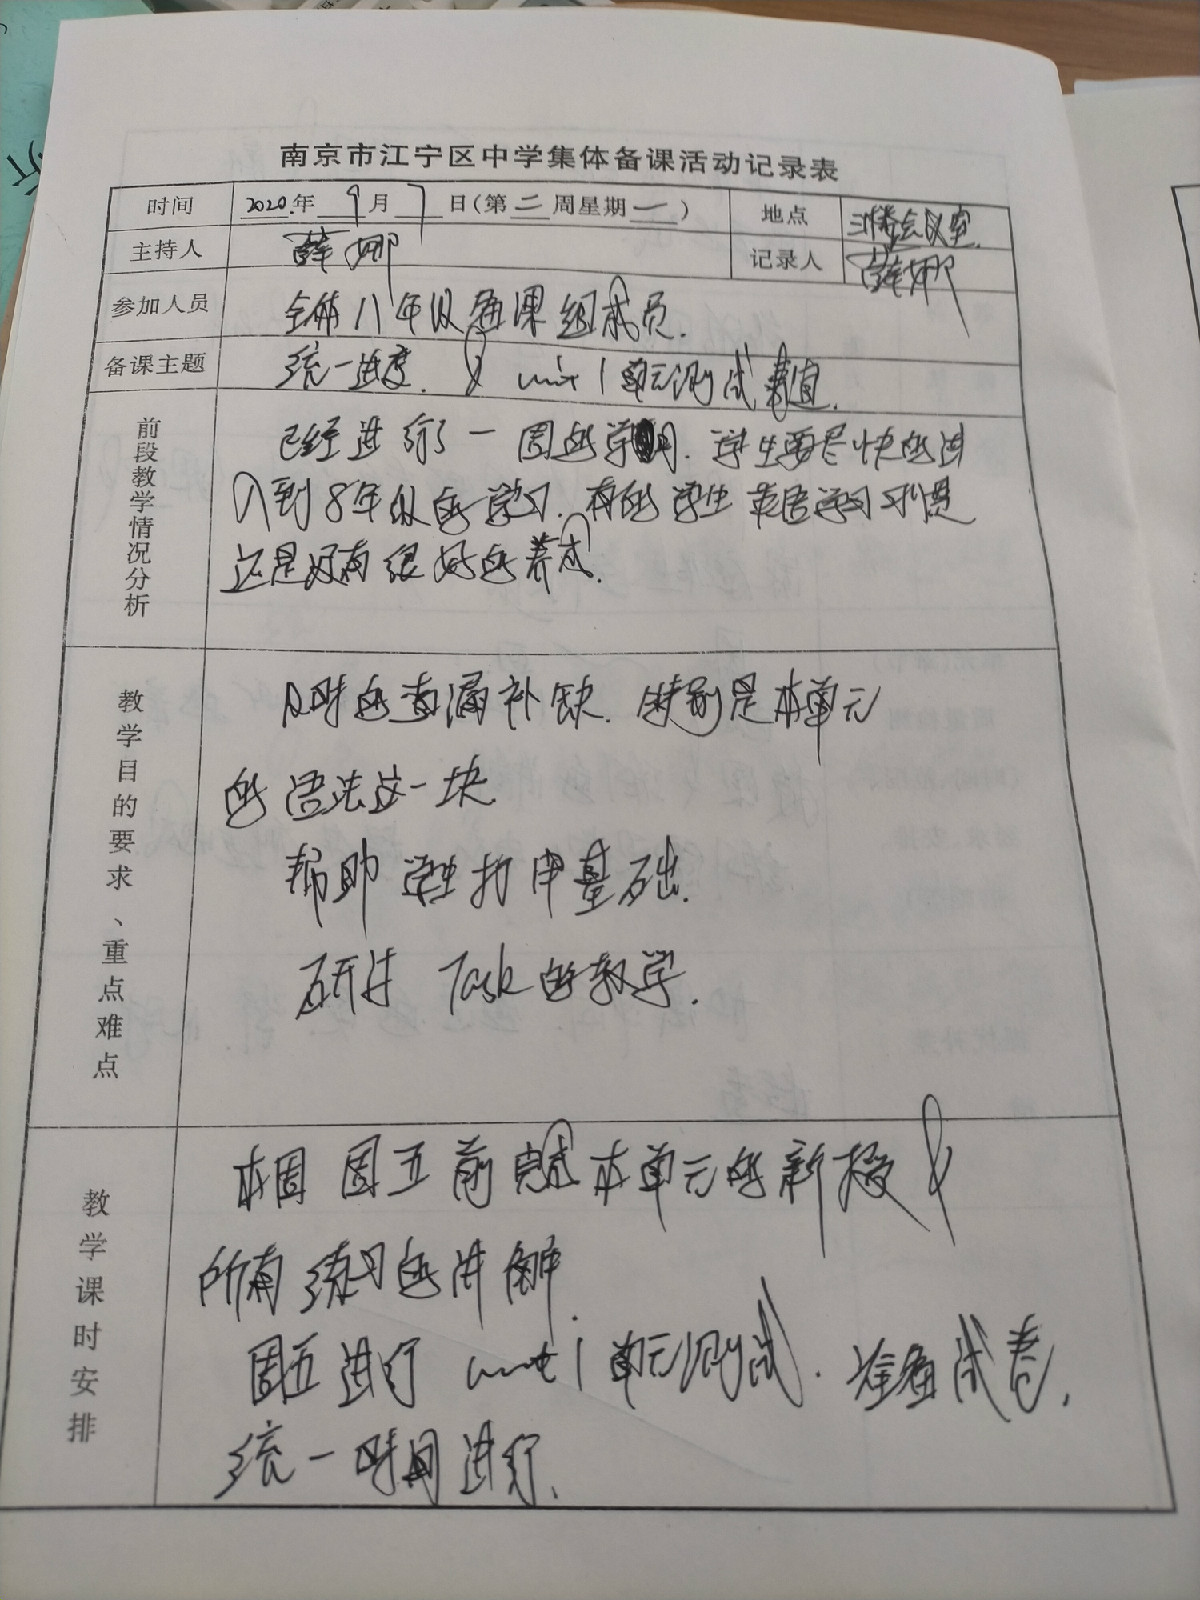 南京市江宁区中学集体备课活动记录表
时间 2020.年 9 月 7 日(第 二 周星期 一 ) 地点 三楼会议室.
主持人 薛娜 记录人 薛娜
参加人员 全体八年级备课组成员.
备课主题 统一进度. & unit 1 单元测试事宜.
前段教学情况分析
已经进行了一周的学习. 学生要尽快的进
入到8年级的学习. 有的学生英语学习习惯
还是没有很好的养成.
教学目的要求、重点难点
及时的查漏补缺. 特别是本单元
的语法这一块
帮助学生打牢基础.
研讨 Task 的教学.
教学课时安排
本周周五前完成本单元的新授 &
所有练习的讲解.
周五进行 unit 1 单元测试. 试卷,
统一时间进行.